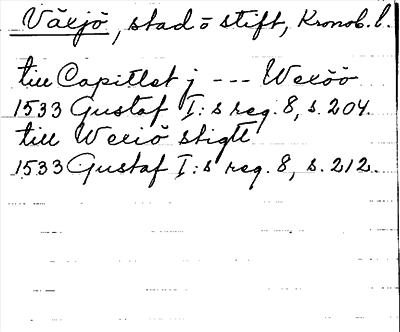 Växjö, stad o stift, Kronob. l.
till Capitlet j --- Wexöö
1533 Gustaf I:s reg. 8, s. 204.
till Wexiö stigtt
1533 Gustaf I:s reg. 8, s. 212.